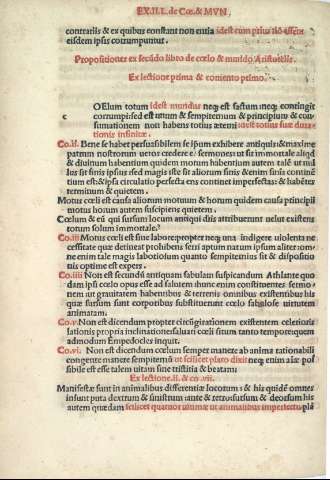 EX.II.L. de Cœ. & MVN.
contrariis & ex quibus constant non entia idest cum prius nō essent
eisdem ipsis corrumpuntur.
Propositiones ex secūdo libro de cœlo & mundo Aristotelis.
Ex lectione prima & cōmento primo.
c OElum totum idest mundus neq; est factum neq; contingit
corrumpi sed est unum & sempiternum & principium & con
sumationem non habens totius æterni idest totius suæ dura
tionis infinitæ.
Co.ii. Bene se habet persuasibilem se ipsum exhibere antiquis: & maxime
patrum nostrorum ueros credere sermones ut sit immortale aliqd
& diuinum habentium quidem motum habentium autem talē ut nul
lus sit finis ipsius sed magis iste sit aliorum finis & enim finis continē
tium est: & ipsa circulatio perfecta ens continet imperfectas: & habētes
terminum & quietem.
Motus cœli est causa aliorum motuum & horum quidem causa principii
motus horum autem suscipiens quietem.
Cœlum & eū qui sursum locum antiqui diis attribuerunt uelut existens
totum solum immortale.
Co.iii Motus cœli est sine labore: propter neq; una indigere uiolenta ne
cessitate quæ detineat prohibens ferri aptum natum ipsum aliter: om
ne enim tale magis laboriosum quanto sempiternius sit & dispositio
nis optime est expers.
Co.iiii Non est secundū antiquam fabulam suspicandum Athlante quo
dam ipsi cœlo opus esse ad salutem
animatam.
Co.v. Non est dicendum propter circūgirationem existentem celerioris
lationis propria inclinatione saluari cœli situm tanto temporequem
admodum Empedocles inquit.
Co.vi. Non est dicendum cœlum semper manere ab anima rationabili
cogente manere sempiternū ut scilicet plato dixit neq; enim aīæ pos
sibile est esse talem uitam sine tristitia & beatam:
Ex lectione.ii. & co.vii.
Manifestæ sunt in animalibus differentiæ locorum: & his quidē omnes
insunt puta dextrum & sinistrum: ante & retro: sursum & deorsum his
autem quædam scilicet quatuor ultimæ ut animalibus imperfectis: plā